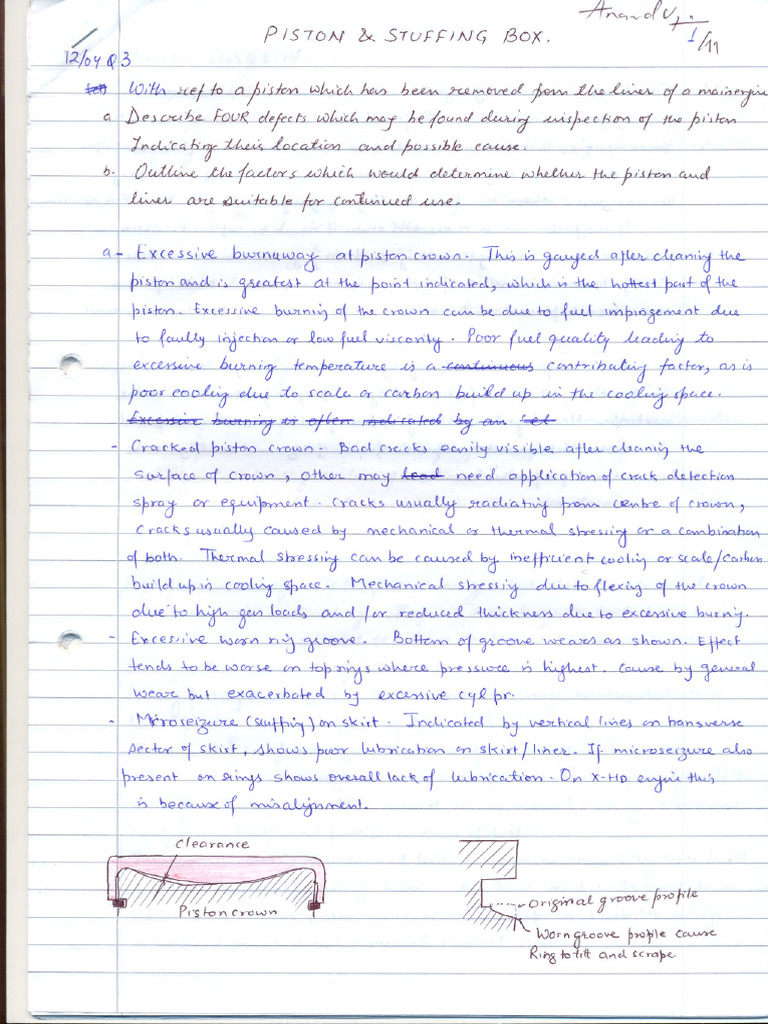 Anand V.
PISTON & STUFFING BOX.
1/11
12/04 Q3
With ref to a piston which has been removed from the liner of a main engine
a. Describe FOUR defects which may be found during inspection of the piston
Indicating their location and possible cause.
b. Outline the factors which would determine whether the piston and
liner are suitable for continued use.
a - Excessive burnaway at piston crown. This is gauged after cleaning the
piston and is greatest at the point indicated, which is the hottest part of the
piston. Excessive burning of the crown can be due to fuel impingement due
to faulty injection or low fuel viscosity. Poor fuel quality leading to
excessive burning temperature is a continuous contributing factor, as is
poor cooling due to scale or carbon build up in the cooling space.
Excessive burning is often indicated by an
- Cracked piston crown. Bad cracks easily visible after cleaning the
surface of crown, other may lead need application of crack detection
spray or equipment. Cracks usually radiating from centre of crown,
cracks usually caused by mechanical or thermal stressing or a combination
of both. Thermal stressing can be caused by inefficient cooling or scale/carbon
build up in cooling space. Mechanical stressing due to flexing of the crown
due to high gas loads and/or reduced thickness due to excessive burning.
- Excessive worn ring groove. Bottom of groove wears as shown. Effect
tends to be worse on top rings where pressure is highest. Cause by general
wear but exacerbated by excessive cyl pr.
- Microseizure (scuffing) on skirt. Indicated by vertical lines on transverse
sector of skirt, shows poor lubrication on skirt/liner. If microseizure also
present on rings shows overall lack of lubrication. On X-HD engine this
is because of misalignment.
Clearance
Piston crown
Original groove profile
Worn groove profile cause
Ring to tilt and scrape